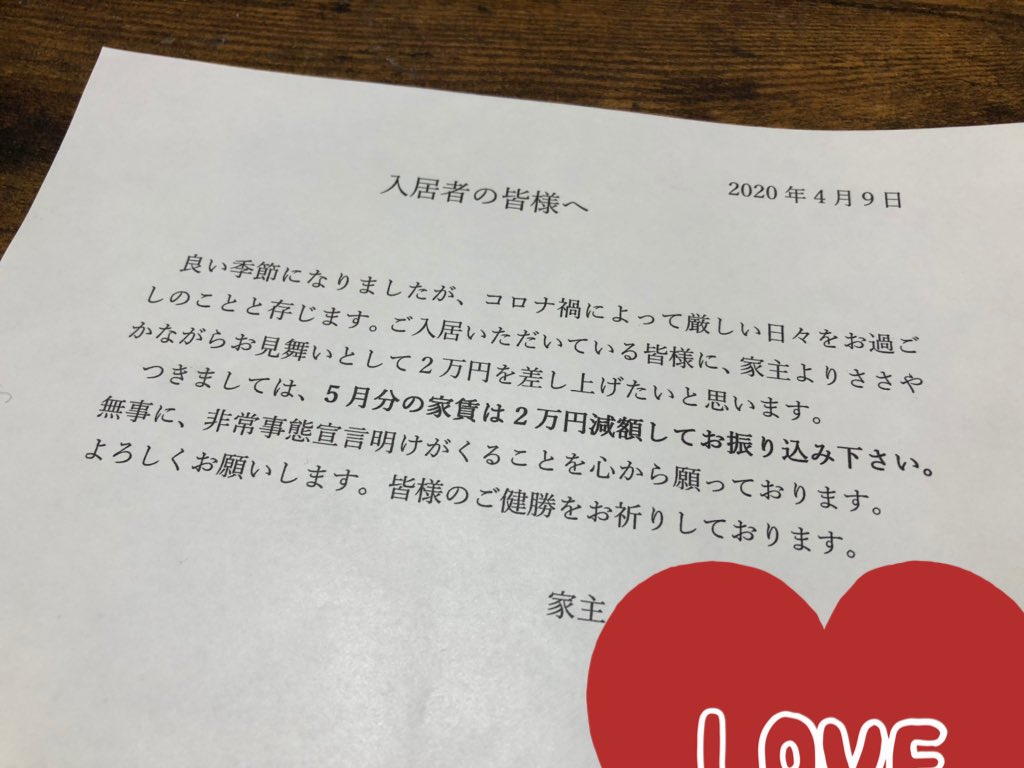 入居者の皆様へ
2020年4月9日
良い季節になりましたが、コロナ禍によって厳しい日々をお過ご
しのことと存じます。ご入居いただいている皆様に、家主よりささや
かながらお見舞いとして2万円を差し上げたいと思います。
つきましては、5月分の家賃は2万円減額してお振り込み下さい。
無事に、非常事態宣言明けがくることを心から願っております。
よろしくお願いします。皆様のご健勝をお祈りしております。
家主
LOVE